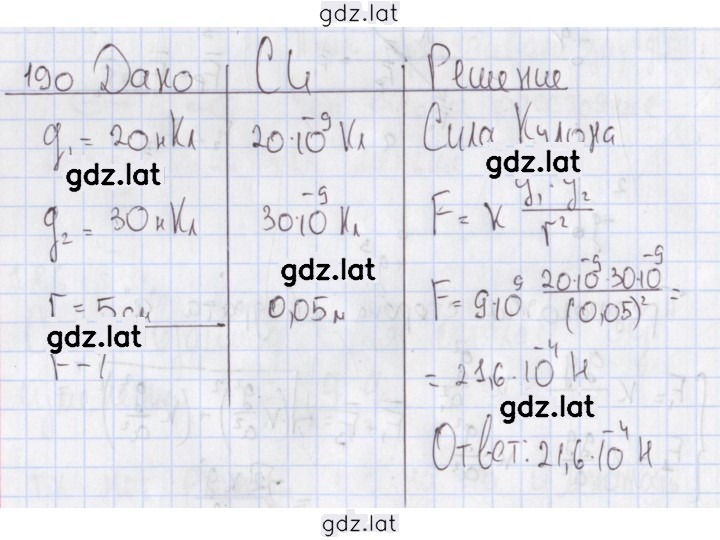 gdz.lat
190 Дано СИ Решение
q₁ = 20нКл 20·10⁻⁹ Кл Сила Кулона
gdz.lat gdz.lat
q₂ = 30нКл 30·10⁻⁹ Кл F = к q₁·q₂/r²
gdz.lat
r = 5см 0,05м F = 9·10⁹ 20·10⁻⁹·30·10⁻⁹/(0,05)² =
gdz.lat
F – ?
= 21,6·10⁻⁴ Н
gdz.lat
Ответ: 21,6·10⁻⁴ Н
gdz.lat